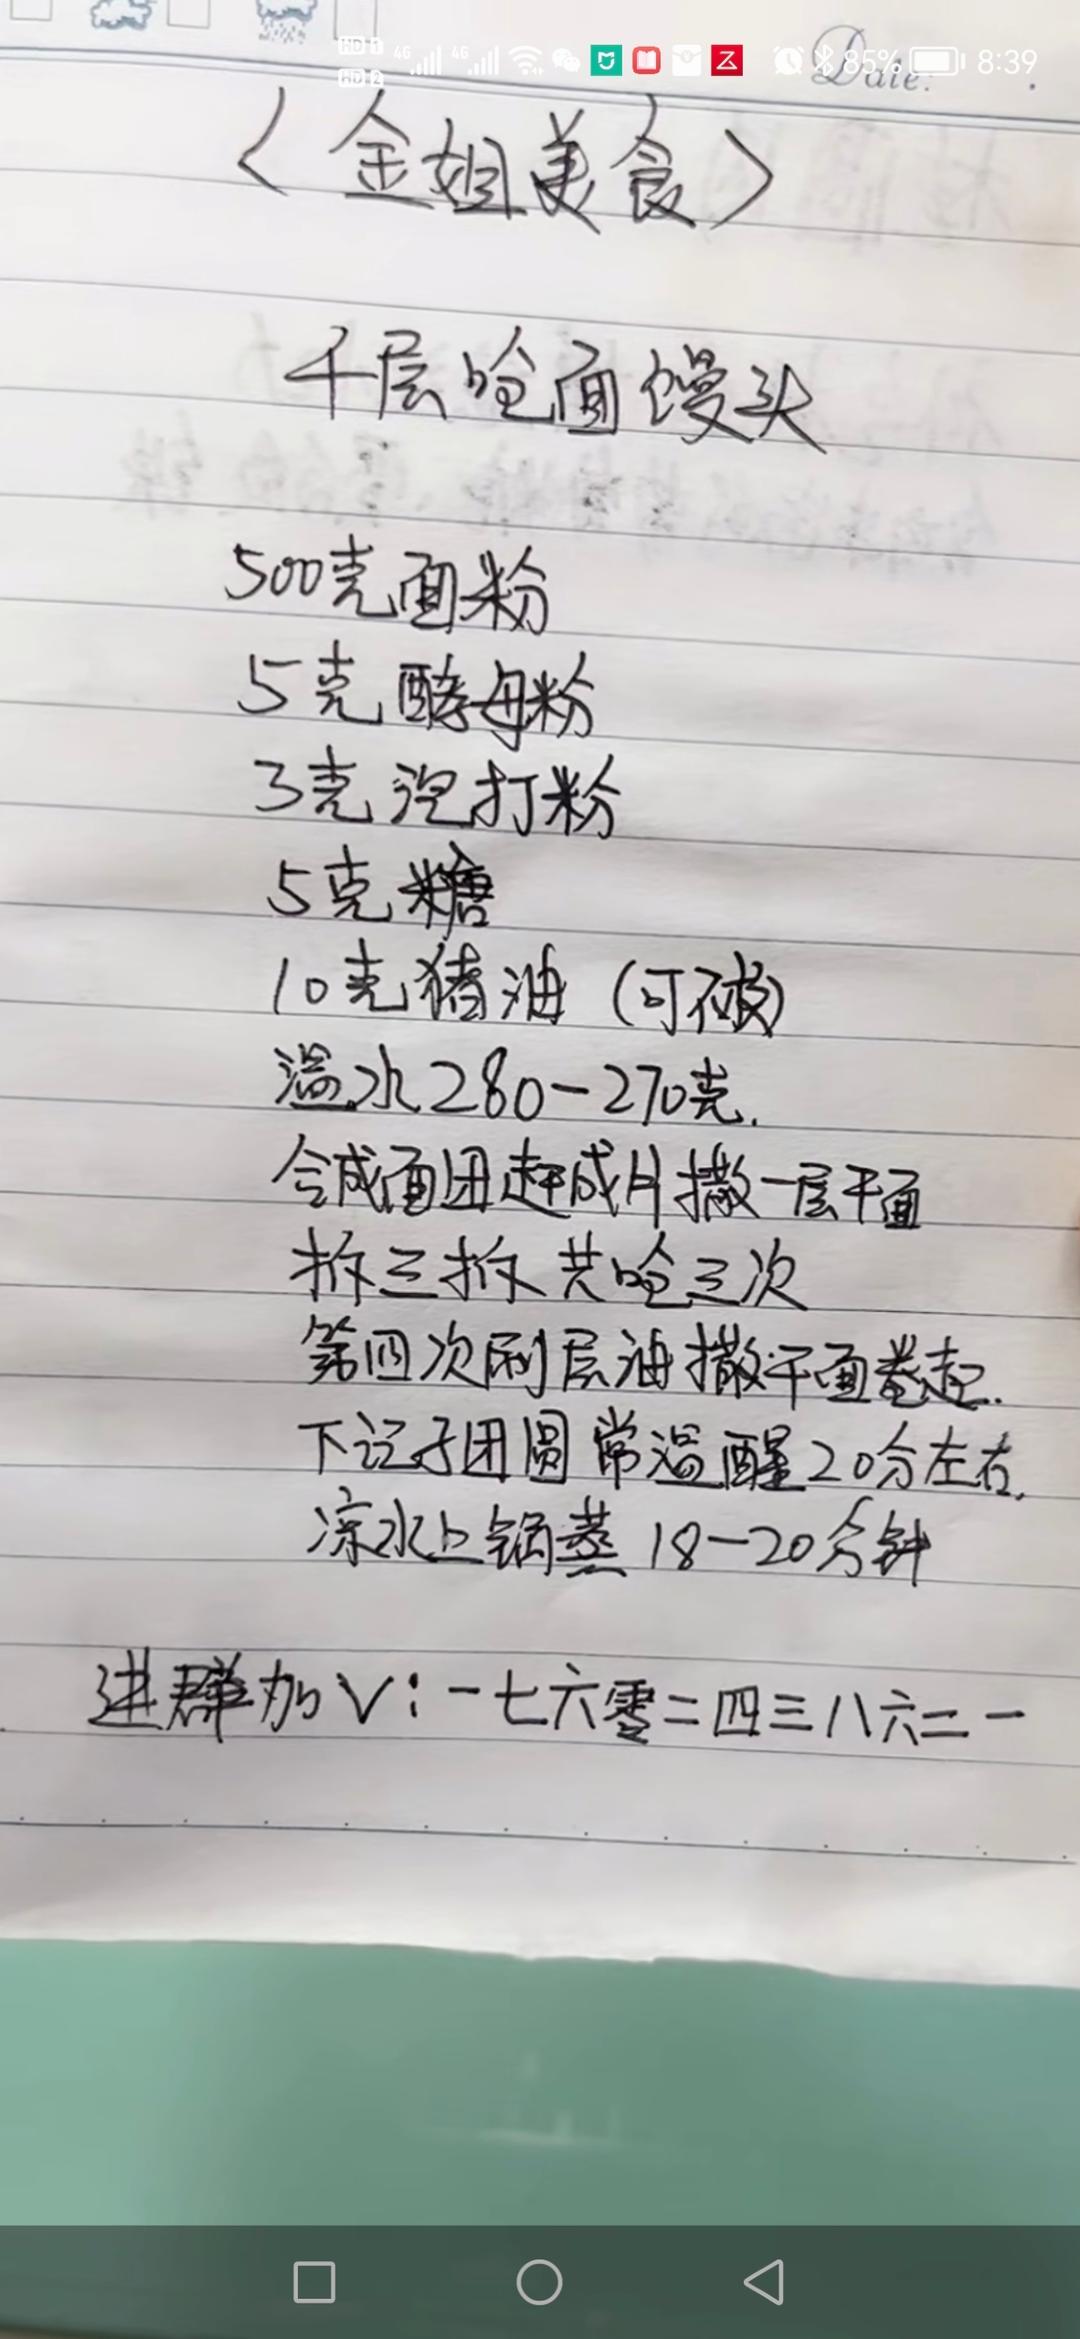 HD 1 4G 4G 85% 8:39
HD 2
Date:
〈金姐美食〉
千层呛面馒头
500克面粉
5克酵母粉
3克泡打粉
5克糖
10克猪油（可不放）
温水280-270克.
合成面团赶成片撒一层干面
折三折共呛三次
第四次刷层油撒干面卷起.
下记子团圆常温醒20分左右.
凉水上锅蒸18-20分钟
进群加V:一七六零二四三八六二一